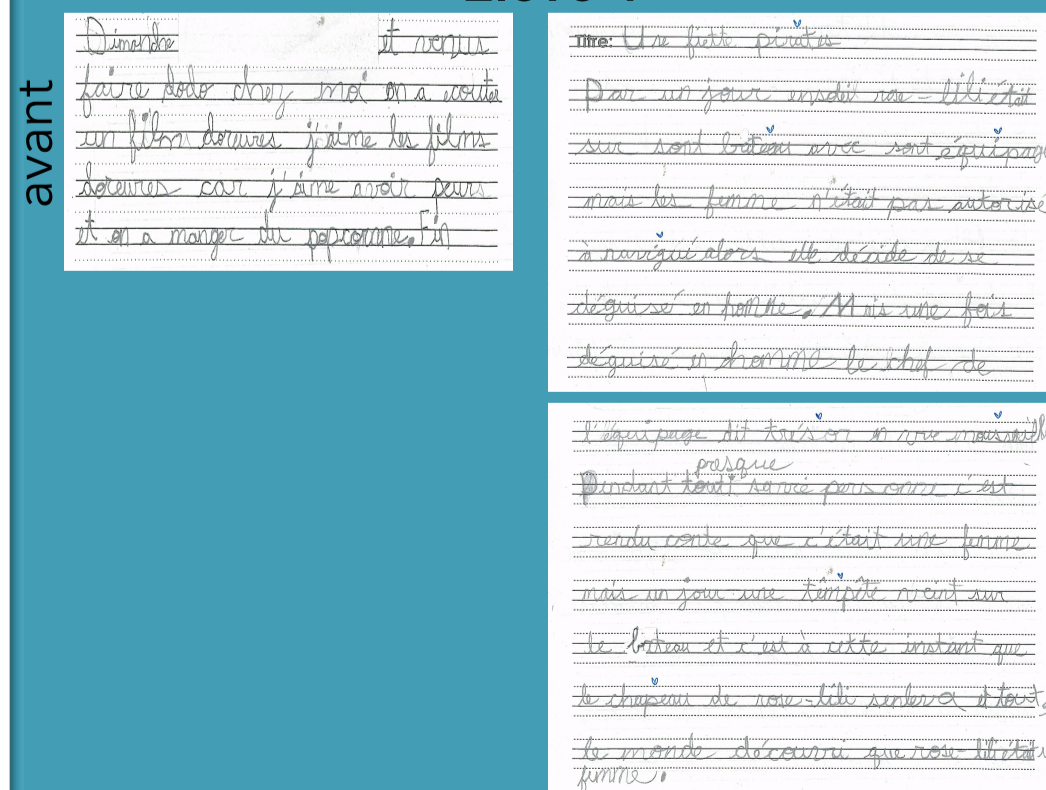 avant
Dimandre et venus
faire dodo chez moi on a ecouter
un film doreures j'aime les films
doreures car j'aime avoir peurs
et on a manger du popcorne. Fin
Titre: Une fiette pirates
Par un jour ensoleil rose-lili était
sur sont bateau avec sont équipage
mais les femme n'était pas autorisé
à navigué alors elle décide de se
déguisé en homme. Mais une fois
déguisé en homme le chef de
l'équipage dit trésor en vue
presque
Pendant tout personne c'est
rendu conte que c'était une femme
mais un jour une tempête vient sur
le bateau et c'est à cette instant que
le chapeau de rose-lili senleva et tout
le monde découvri que rose-lili était
femme.